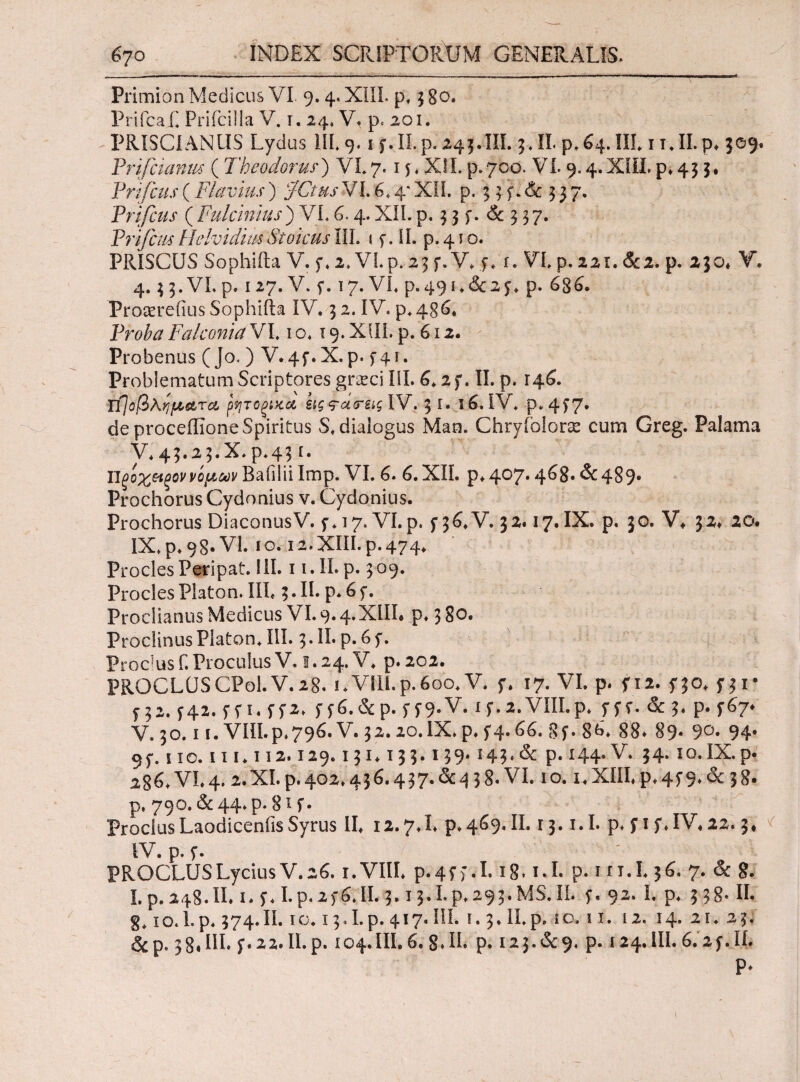 670 INDEX SCRIPTORUM GENERALIS.
Primion Medicus VI. 9. 4. XIII. p. 380.
Priſca ſ. Priſcilla V. 1. 24. V. p. 201.
PRISCIANUS Lydus III. 9. 15. II. p. 243. III. 3. II. p. 64. III. 11. II. p. 309.
Priſcianus (Theodorus) VI. 7. 15. XII. p. 700. VI. 9. 4. XIII. p. 433.
Priſcus (Flavius) JCtus VI. 6. 4. XII. p. 335. & 337.
Priſcus (Fulcinius) VI. 6. 4. XII. p. 335. & 337.
Priſcus Helvidius Stoicus III. 15. II. p. 410.
PRISCUS Sophiſta V. 5. 2. VI. p. 235. V. 5. 1. VI. p. 221. & 2. p. 230. V.
4. 33. VI. p. 127. V. 5. 17. VI. p. 491. & 25. p. 686.
Proæreſius Sophiſta IV. 32. IV. p. 486.
Proba Falconia VI. 10. 19. XIII. p. 612.
Probenus (Jo.) V. 45. X. p. 541.
Problematum Scriptores græci III. 6. 25. II. p. 146.
Προβλήματα ῥητορικὰ εἰς στάσεις IV. 31. 16. IV. p. 457.
de proceſſione Spiritus S. dialogus Man. Chryſoloræ cum Greg. Palama
V. 43. 23. X. p. 431.
Πρόχειρον νόμων Baſilii Imp. VI. 6. 6. XII. p. 407. 468. & 489.
Prochorus Cydonius v. Cydonius.
Prochorus Diaconus V. 5. 17. VI. p. 536. V. 32. 17. IX. p. 30. V. 32. 20.
IX. p. 98. VI. 10. 12. XIII. p. 474.
Procles Peripat. III. 11. II. p. 309.
Procles Platon. III. 3. II. p. 65.
Proclianus Medicus VI. 9. 4. XIII. p. 380.
Proclinus Platon. III. 3. II. p. 65.
Proclus ſ. Proculus V. 1. 24. V. p. 202.
PROCLUS CPol. V. 28. 1. VIII. p. 600. V. 5. 17. VI. p. 512. 530. 531.
532. 542. 551. 552. 556. & p. 559. V. 15. 2. VIII. p. 555. & 3. p. 567.
V. 30. 11. VIII. p. 796. V. 32. 20. IX. p. 54. 66. 85. 86. 88. 89. 90. 94.
95. 110. 111. 112. 129. 131. 133. 139. 143. & p. 144. V. 34. 10. IX. p.
286. VI. 4. 2. XI. p. 402. 436. 437. & 438. VI. 10. 1. XIII. p. 459. & 38.
p. 790. & 44. p. 815.
Proclus Laodicenſis Syrus II. 12. 7. I. p. 469. II. 13. 1. I. p. 515. IV. 22. 3.
IV. p. 5.
PROCLUS Lycius V. 26. 1. VIII. p. 455. I. 18. 1. I. p. 111. I. 36. 7. & 8.
I. p. 248. II. 1. 5. I. p. 256. II. 3. 13. I. p. 293. MS. II. 5. 92. I. p. 338. II.
8. 10. I. p. 374. II. 10. 13. I. p. 417. III. 1. 3. II. p. 10. 11. 12. 14. 21. 23.
& p. 38. III. 5. 22. II. p. 104. III. 6. 8. II. p. 123. & 9. p. 124. III. 6. 25. II.
p.